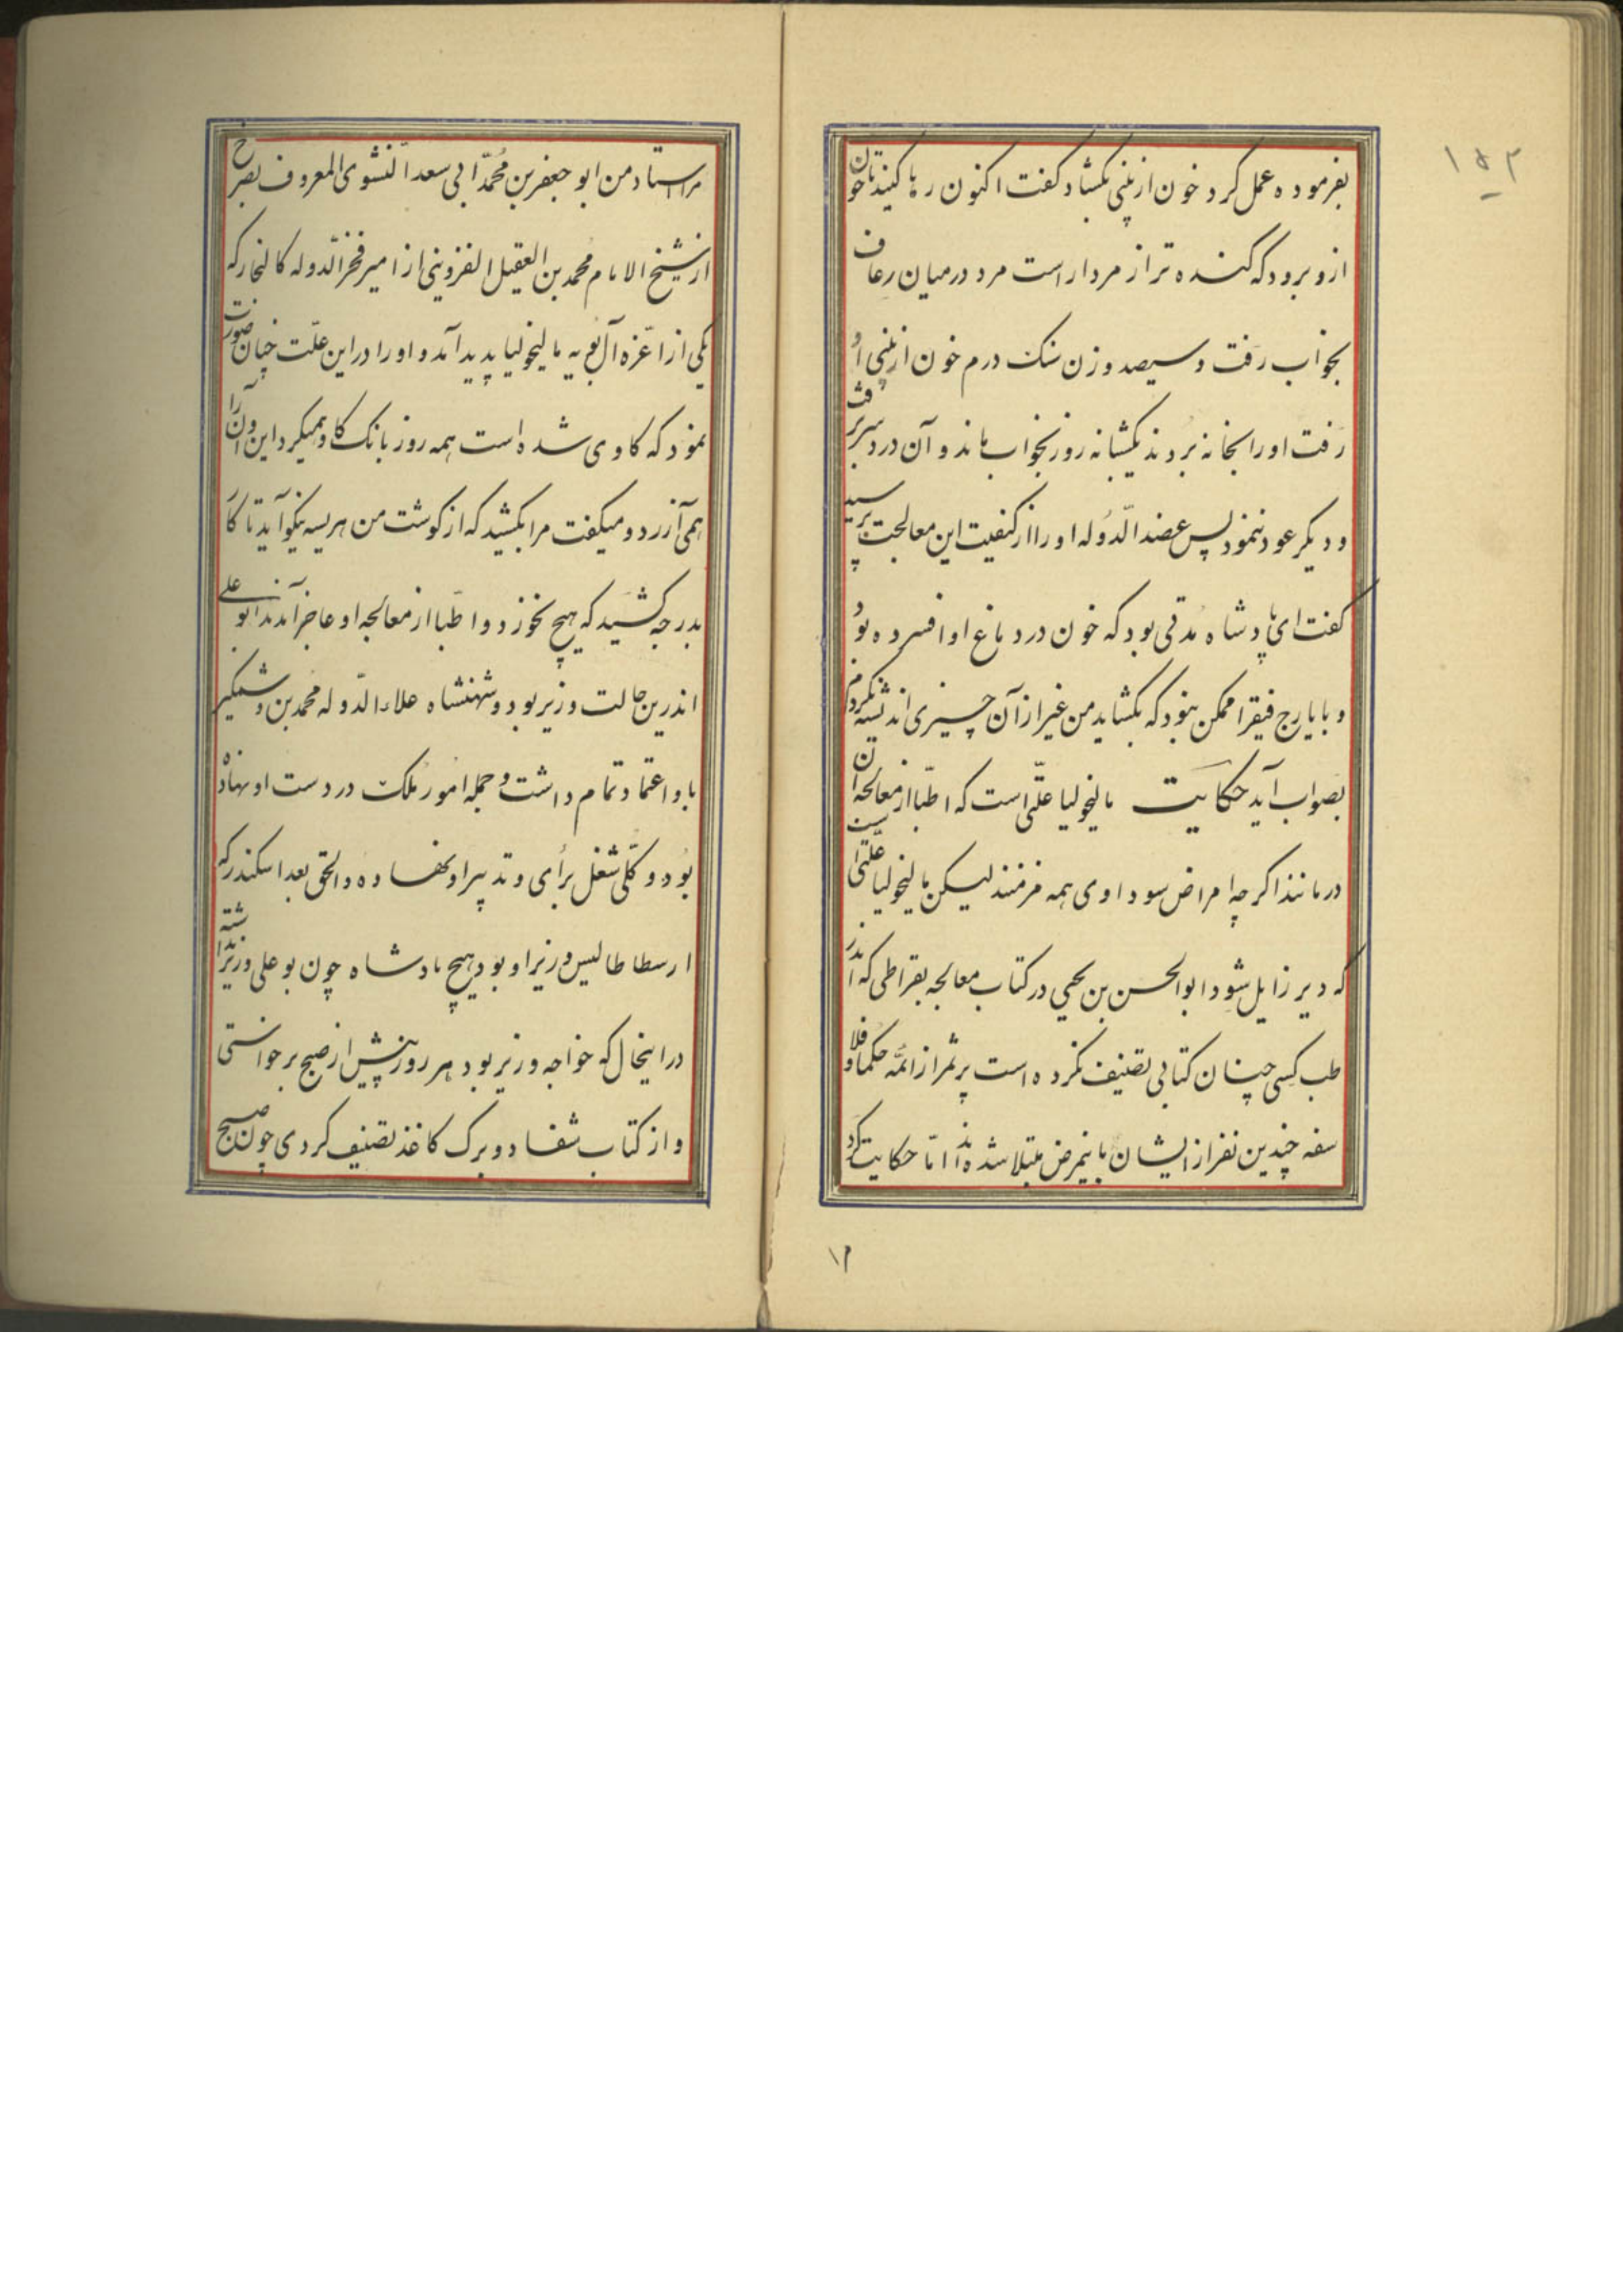 ۱۵۲
بفرموده عمل کرد خون از بینی بکشاد کفت اکنون رها کنید تا خون
ازو برود که کنده تر از مردار است مرد در میان رعاف
بخواب رفت و سیصد وزن سنک درم خون از بینی او
رفت او را بخانه بردند یکشبانه روز بخواب ماند و آن درد سر برفت
و دیکر عود ننمود پس عضد الدوله او را از کیفیت این معالجت پرسید
کفت ای پادشاه مدتی بود که خون در دماغ او افسرده بود
و بایارج فیقرا ممکن نبود که بکشاید من غیر از آن چیزی اندیشه نکردم
بصواب آید حکایت مالیخولیا علتی است که اطبا از معالجه آن
درمانند اکر چه امراض سوداوی همه مزمنند لیکن مالیخولیا علتی است
که دیر زایل شود ابو الحسن بن یحیی در کتاب معالجه بقراطی که اندر
طب کسی چنان کتابی تصنیف نکرده است برشمرد از ائمه حکما و فلا
سفه چندین نفر از ایشان باینمرض مبتلا شده اند اما حکایت کرد
۱۲
مرا استاد من ابو جعفر بن محمد ابی سعد النشوی المعروف بصرخ
از شیخ الامام محمد بن العقیل القزوینی از امیر فخر الدوله کالنجار که
یکی از اعزه آل بویه مالیخولیا پدید آمد و او را در این علت چنان صورت
نمود که کاوی شده است همه روز بانک کاو همیکرد این و آن را
همی آزرد و میکفت مرا بکشید که از کوشت من هریسه نیکو آید تا کار
بدرجه کشید که هیچ نخورد و اطبا از معالجه او عاجز آمدند ابو علی
اندرین حالت وزیر بود و شهنشاه علاء الدوله محمد بن وشمکیر
باو اعتماد تمام داشت و جمله امور ملک در دست او نهاده
بود و کلی شغل برای و تدبیر او نهاده و الحق بعد اسکندر که
ارسطا طالیس وزیر او بود هیچ پادشاه چون بو علی وزیر نداشته
در اینحال که خواجه وزیر بود هر روز پیش از صبح برخواستی
و از کتاب شفا دو برک کاغذ تصنیف کردی چون صبح